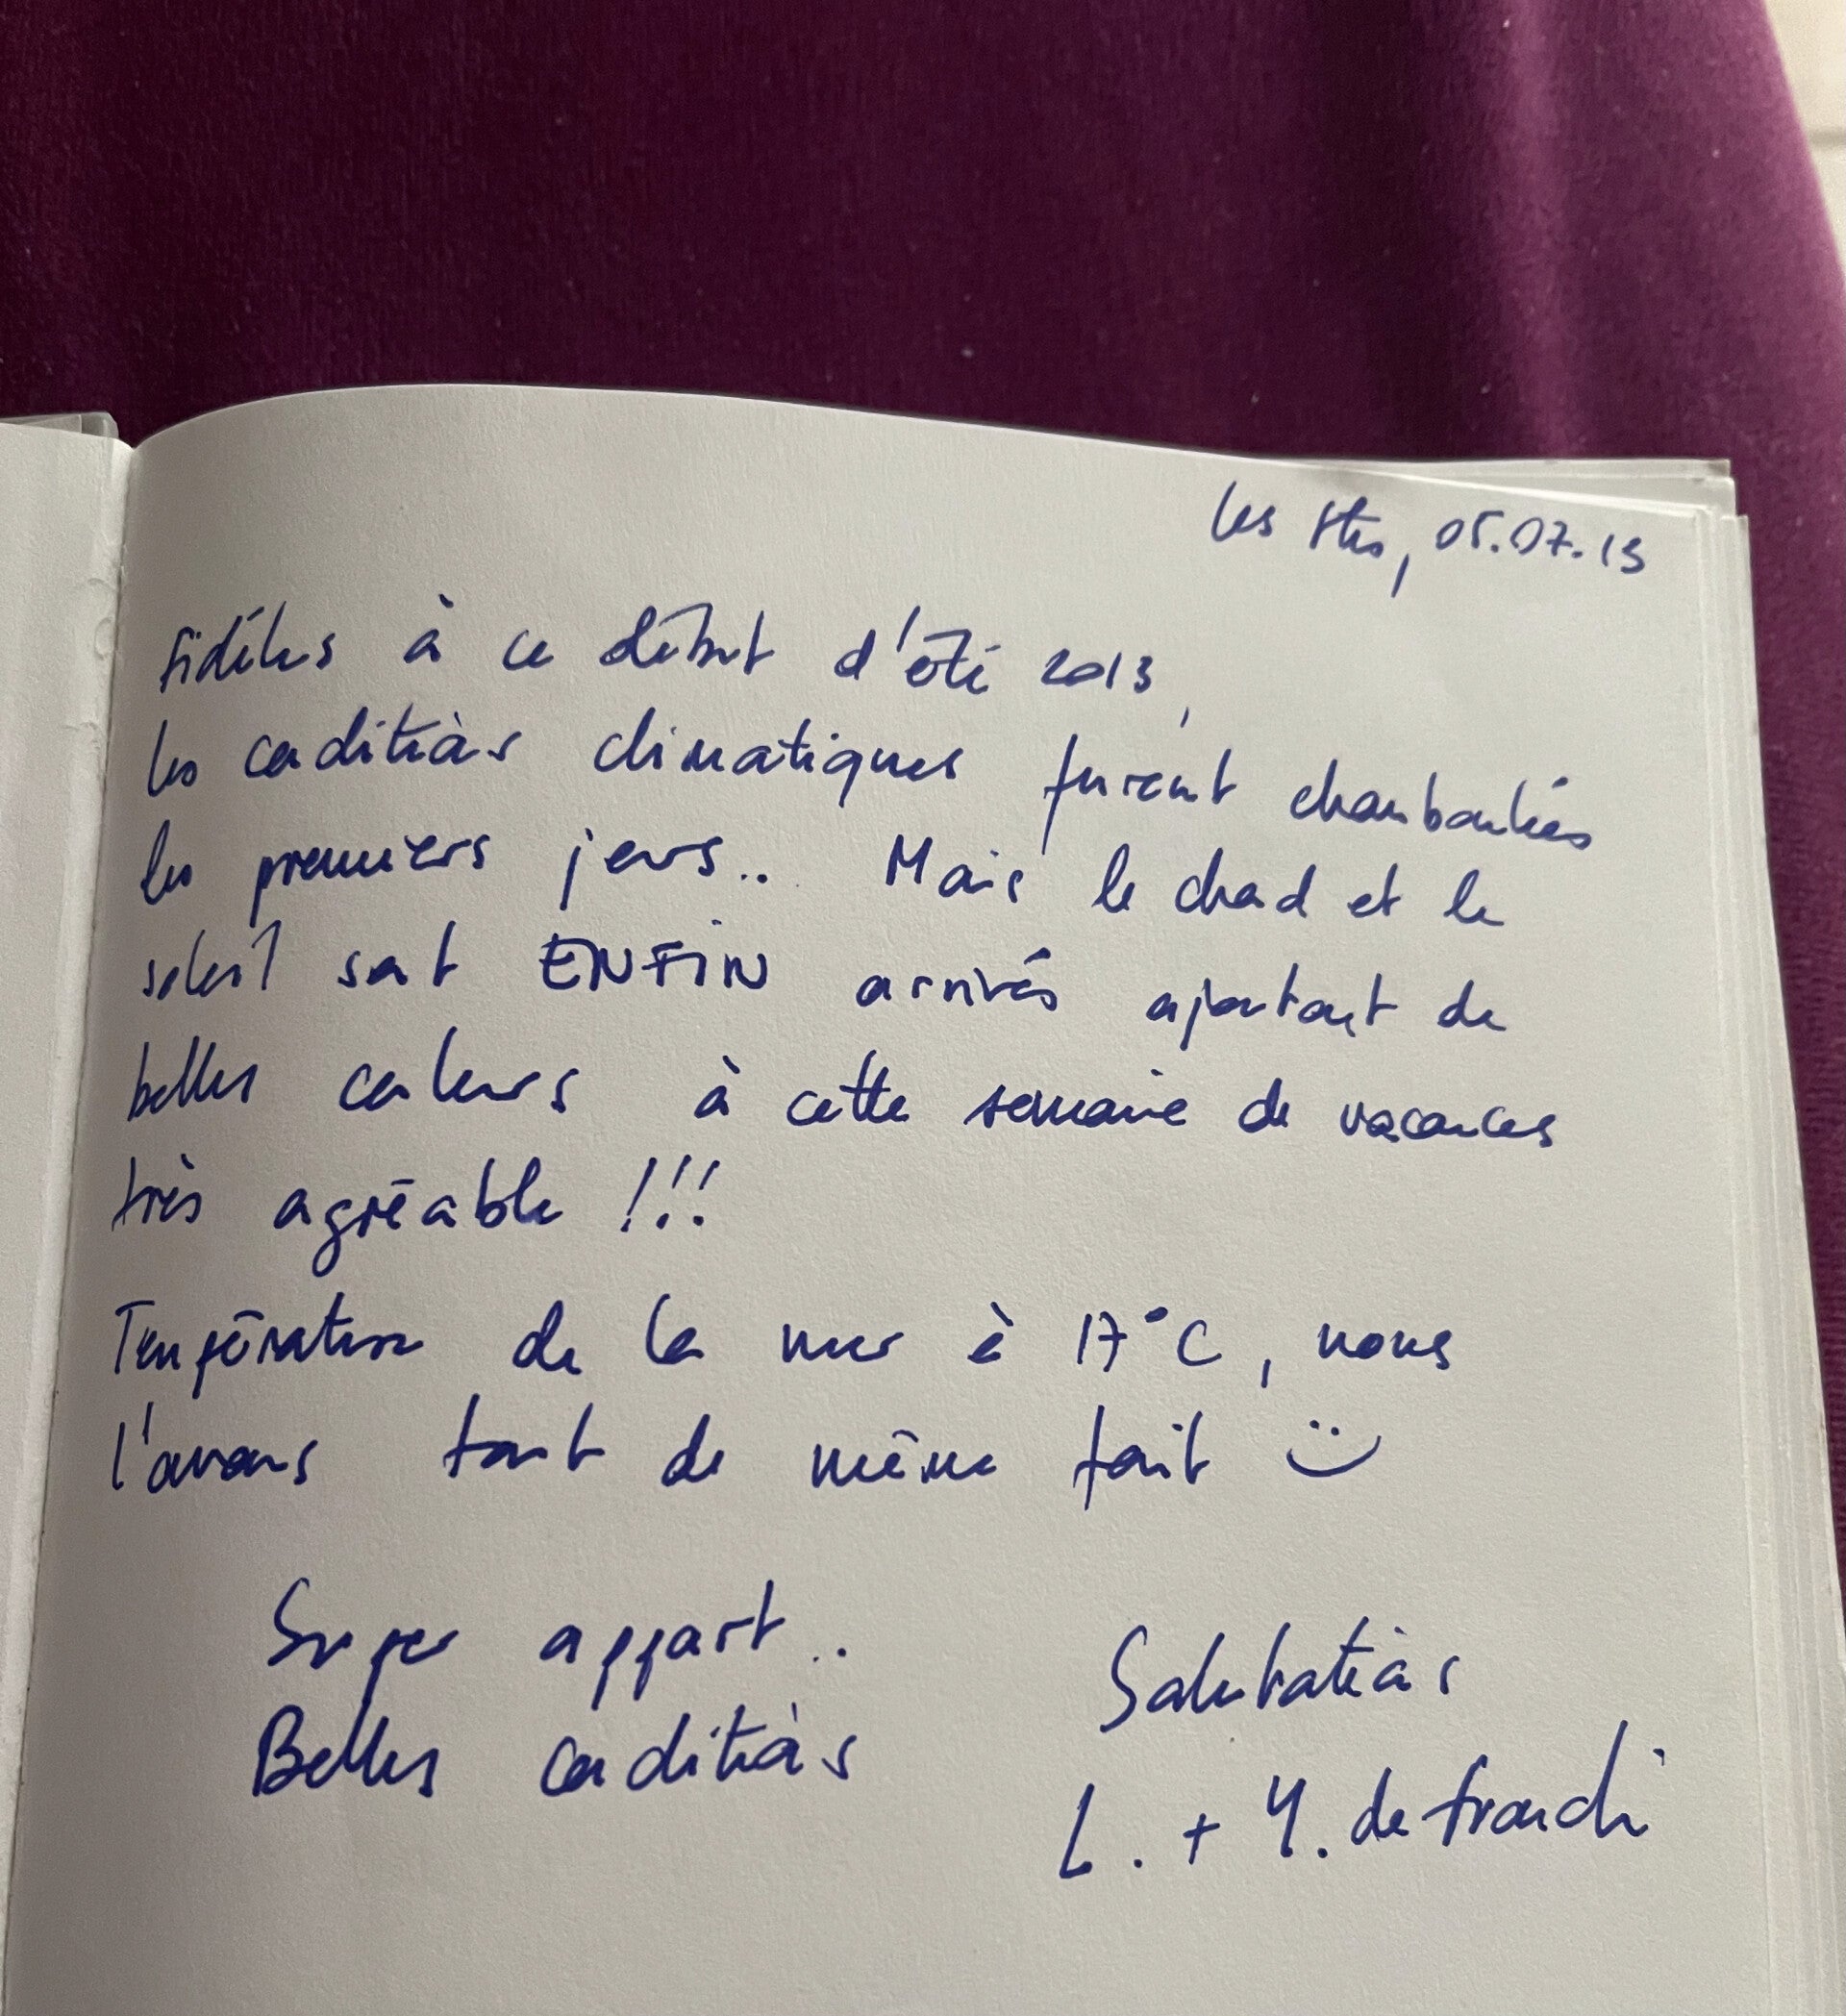 Les Stes, 05.07.13
Fidèles à ce début d'été 2013,
les conditions climatiques furent chamboulées
les premiers jours.. Mais le chaud et le
soleil sont ENFIN arrivés ajoutant de
belles couleurs à cette semaine de vacances
très agréable !!!
Température de la mer à 17°C, nous
l'avons tout de même fait :)
Super appart..
Belles conditions
Salutations
L. + Y. de franchi